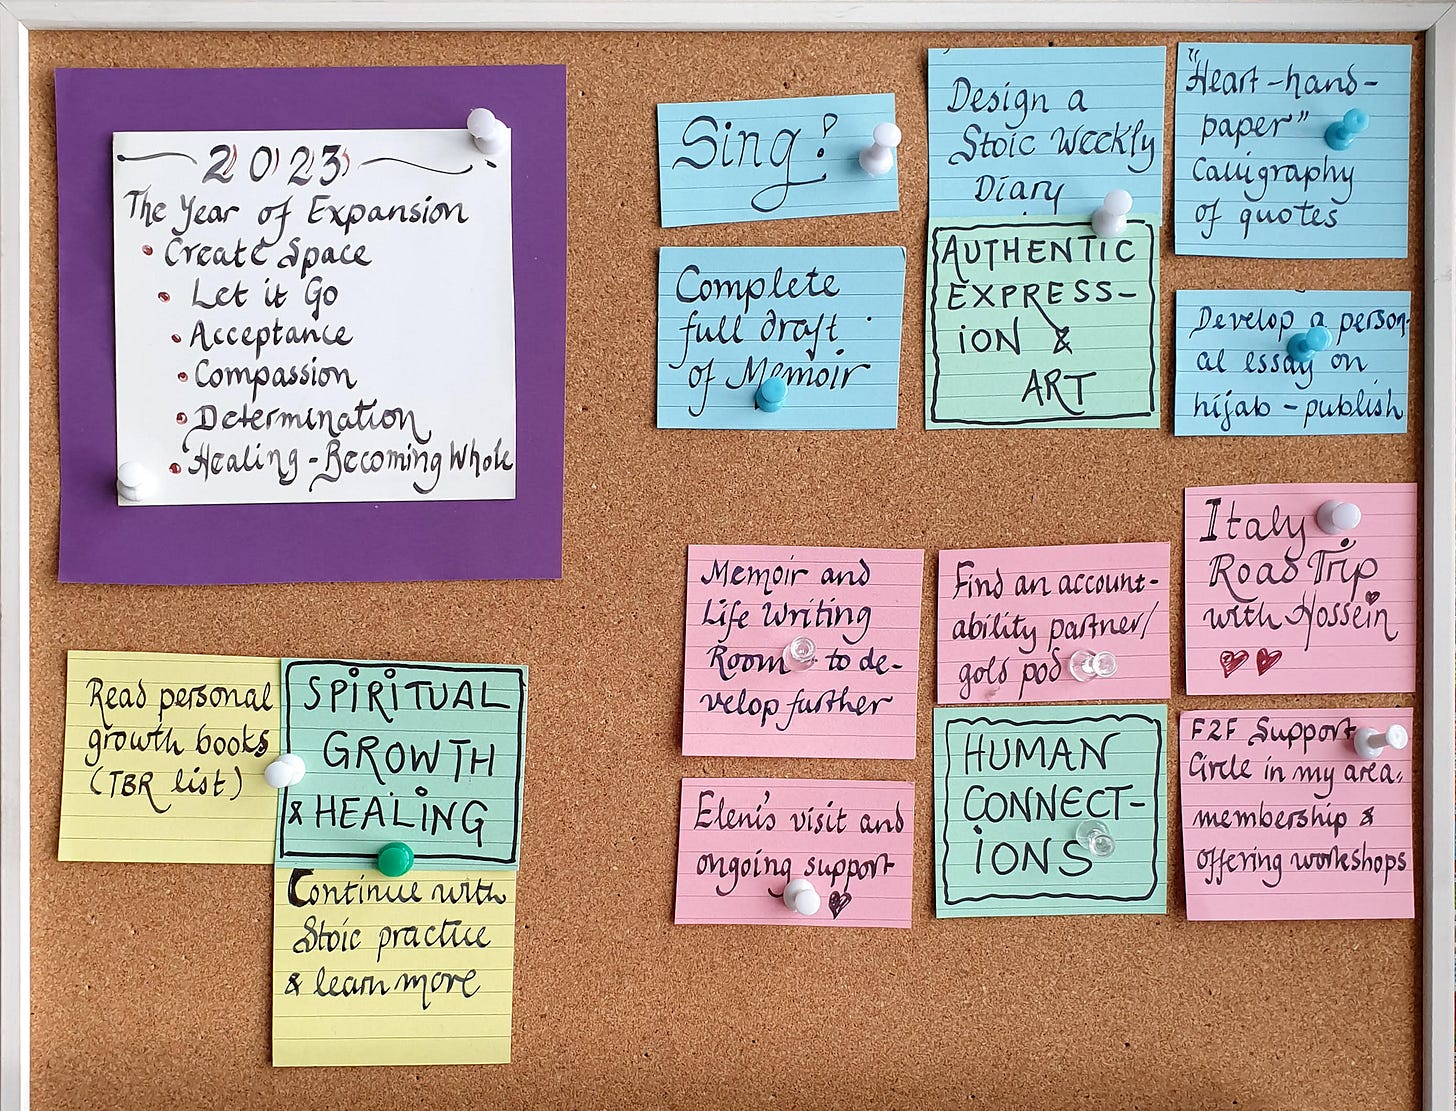 2023
The Year of Expansion
• Create Space
• Let it Go
• Acceptance
• Compassion
• Determination
• Healing - Becoming Whole
Sing!
Complete
full draft
of Memoir
Design a
Stoic Weekly
Diary
AUTHENTIC
EXPRESS-
ION &
ART
"Heart-hand-
paper"
Calligraphy
of quotes
Develop a person-
al essay on
hijab - publish
Read personal
growth books
(TBR list)
SPIRITUAL
GROWTH
& HEALING
Continue with
Stoic practice
& learn more
Memoir and
Life Writing
Room - to de-
velop further
Find an account-
ability partner/
gold pod
Italy
Road Trip
with Hossein
Eleni's visit and
ongoing support
HUMAN
CONNECT-
IONS
F2F Support
Circle in my area,
membership &
offering workshops